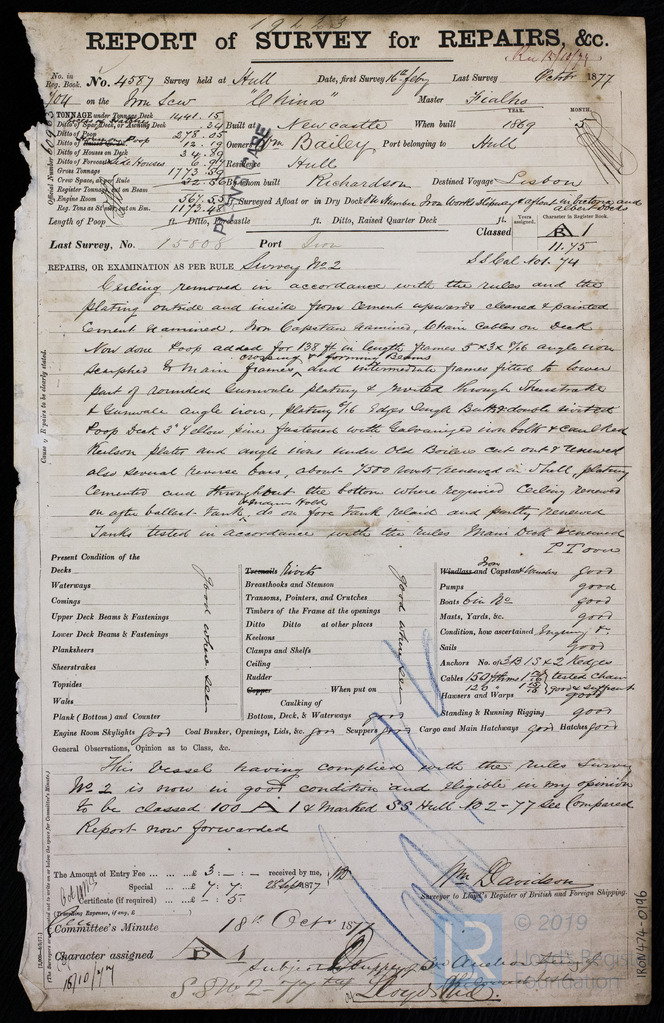 19223
REPORT of SURVEY for REPAIRS, &c.
Rec 15/10/77
No. in Reg. Book.
No. 4587 Survey held at Hull Date, first Survey 16th feby Last Survey Octbr 1877
704 on the Iron Scw "China" Master Fialho
YEAR. MONTH.
TONNAGE under Tonnage Deck 1441.15
Ditto of Spar Deck, or Awning Deck .34 Built at Newcastle When built 1869 5
Ditto of Poop 278.05
Ditto of 12.19 Owners Wm Bailey Port belonging to Hull
Ditto of Houses on Deck 34.89
Ditto of Forecastle Side Houses 6.97 Residence Hull
Gross Tonnage 1773.59
Crew Space, as per Rule 32.56 By whom built Richardson Destined Voyage Lisbon
Register Tonnage, cut on Beam
Engine Room 567.55 Surveyed Afloat or in Dry Dock On Humber Iron Works Slipway & afloat in Victoria and Albert Docks
Reg. Tons as Steamer, cut on Bm. 1173.48
Official Number 60903
Length of Poop ft. Ditto, Forecastle ft. Ditto, Raised Quarter Deck ft.
Years assigned. Character in Register Book.
Classed B 1
11.75
Last Survey, No. 15808 Port Iron
SS Cal Nov. 74
REPAIRS, OR EXAMINATION AS PER RULE Survey No 2
Ceiling removed in accordance with the rules and the
plating outside and inside from cement upwards cleaned & painted
Cement Examined, Iron Capstan Examined, Chain Cables on Deck
Now done Poop added for 138 ft in length frames 5 x 3 x 8/16 angle iron
scarphed to Main frames crossing & forming Beams and intermediate frames fitted to lower
part of rounded Gunwale plating & riveted through Sheerstrake
& Gunwale angle iron, plating 6/16 Edges Single Butts double riveted
Poop Deck 3" Yellow pine fastened with Galvanized iron bolts & caulked
Keelson plates and angle irons under Old Boilers cut out & renewed
also several reverse bars, about 7500 rivets renewed in Shell, plating
cemented and throughout the bottom where required Ceiling renewed
on after ballast Tank & Main Hold, do on fore tank relaid and partly renewed
Tanks tested in accordance with the rules Main Deck renewed
P T over
Cause of Repairs to be clearly stated.
Present Condition of the
Decks
Waterways
Comings
Upper Deck Beams & Fastenings
Lower Deck Beams & Fastenings
Planksheers
Sheerstrakes
Topsides
Wales
Plank (Bottom) and Counter
Good where seen
Treenails Rivets
Breasthooks and Stemson
Transoms, Pointers, and Crutches
Timbers of the Frame at the openings
Ditto Ditto at other places
Keelsons
Clamps and Shelfs
Ceiling
Rudder
Copper When put on
Caulking of
Bottom, Deck, & Waterways good
Good where seen
Windlass and Capstan Iron good
Pumps good
Boats Six No good
Masts, Yards, &c. good
Condition, how ascertained
Sails good
Anchors No. of 3B 1S & 2 Kedges
Cables 150 fthms tested chain
120 good & sufficient
Hawsers and Warps good
Standing & Running Rigging good
Engine Room Skylights good Coal Bunker, Openings, Lids, &c. good Scuppers good Cargo and Main Hatchways good Hatches good
General Observations, Opinion as to Class, &c.
This Vessel having complied with the rules Survey
No 2 is now in good condition and eligible in my opinion
to be classed 100 A 1 & Marked SS Hull No 2-77 See Compared
Report now forwarded
The Amount of Entry Fee ... £ 3 : - : - received by me,
Special ... £ 7 : 7 : 28 Sept 1877
Certificate (if required) ... £ - : 5.
(Travelling Expenses, if any, £
Wm Davidson
Surveyor to Lloyd's Register of British and Foreign Shipping.
Committee's Minute 18th Octr 1877
Character assigned B 1
15/10/77
© 2019
Lloyd's Register
Foundation
IRON474-0196